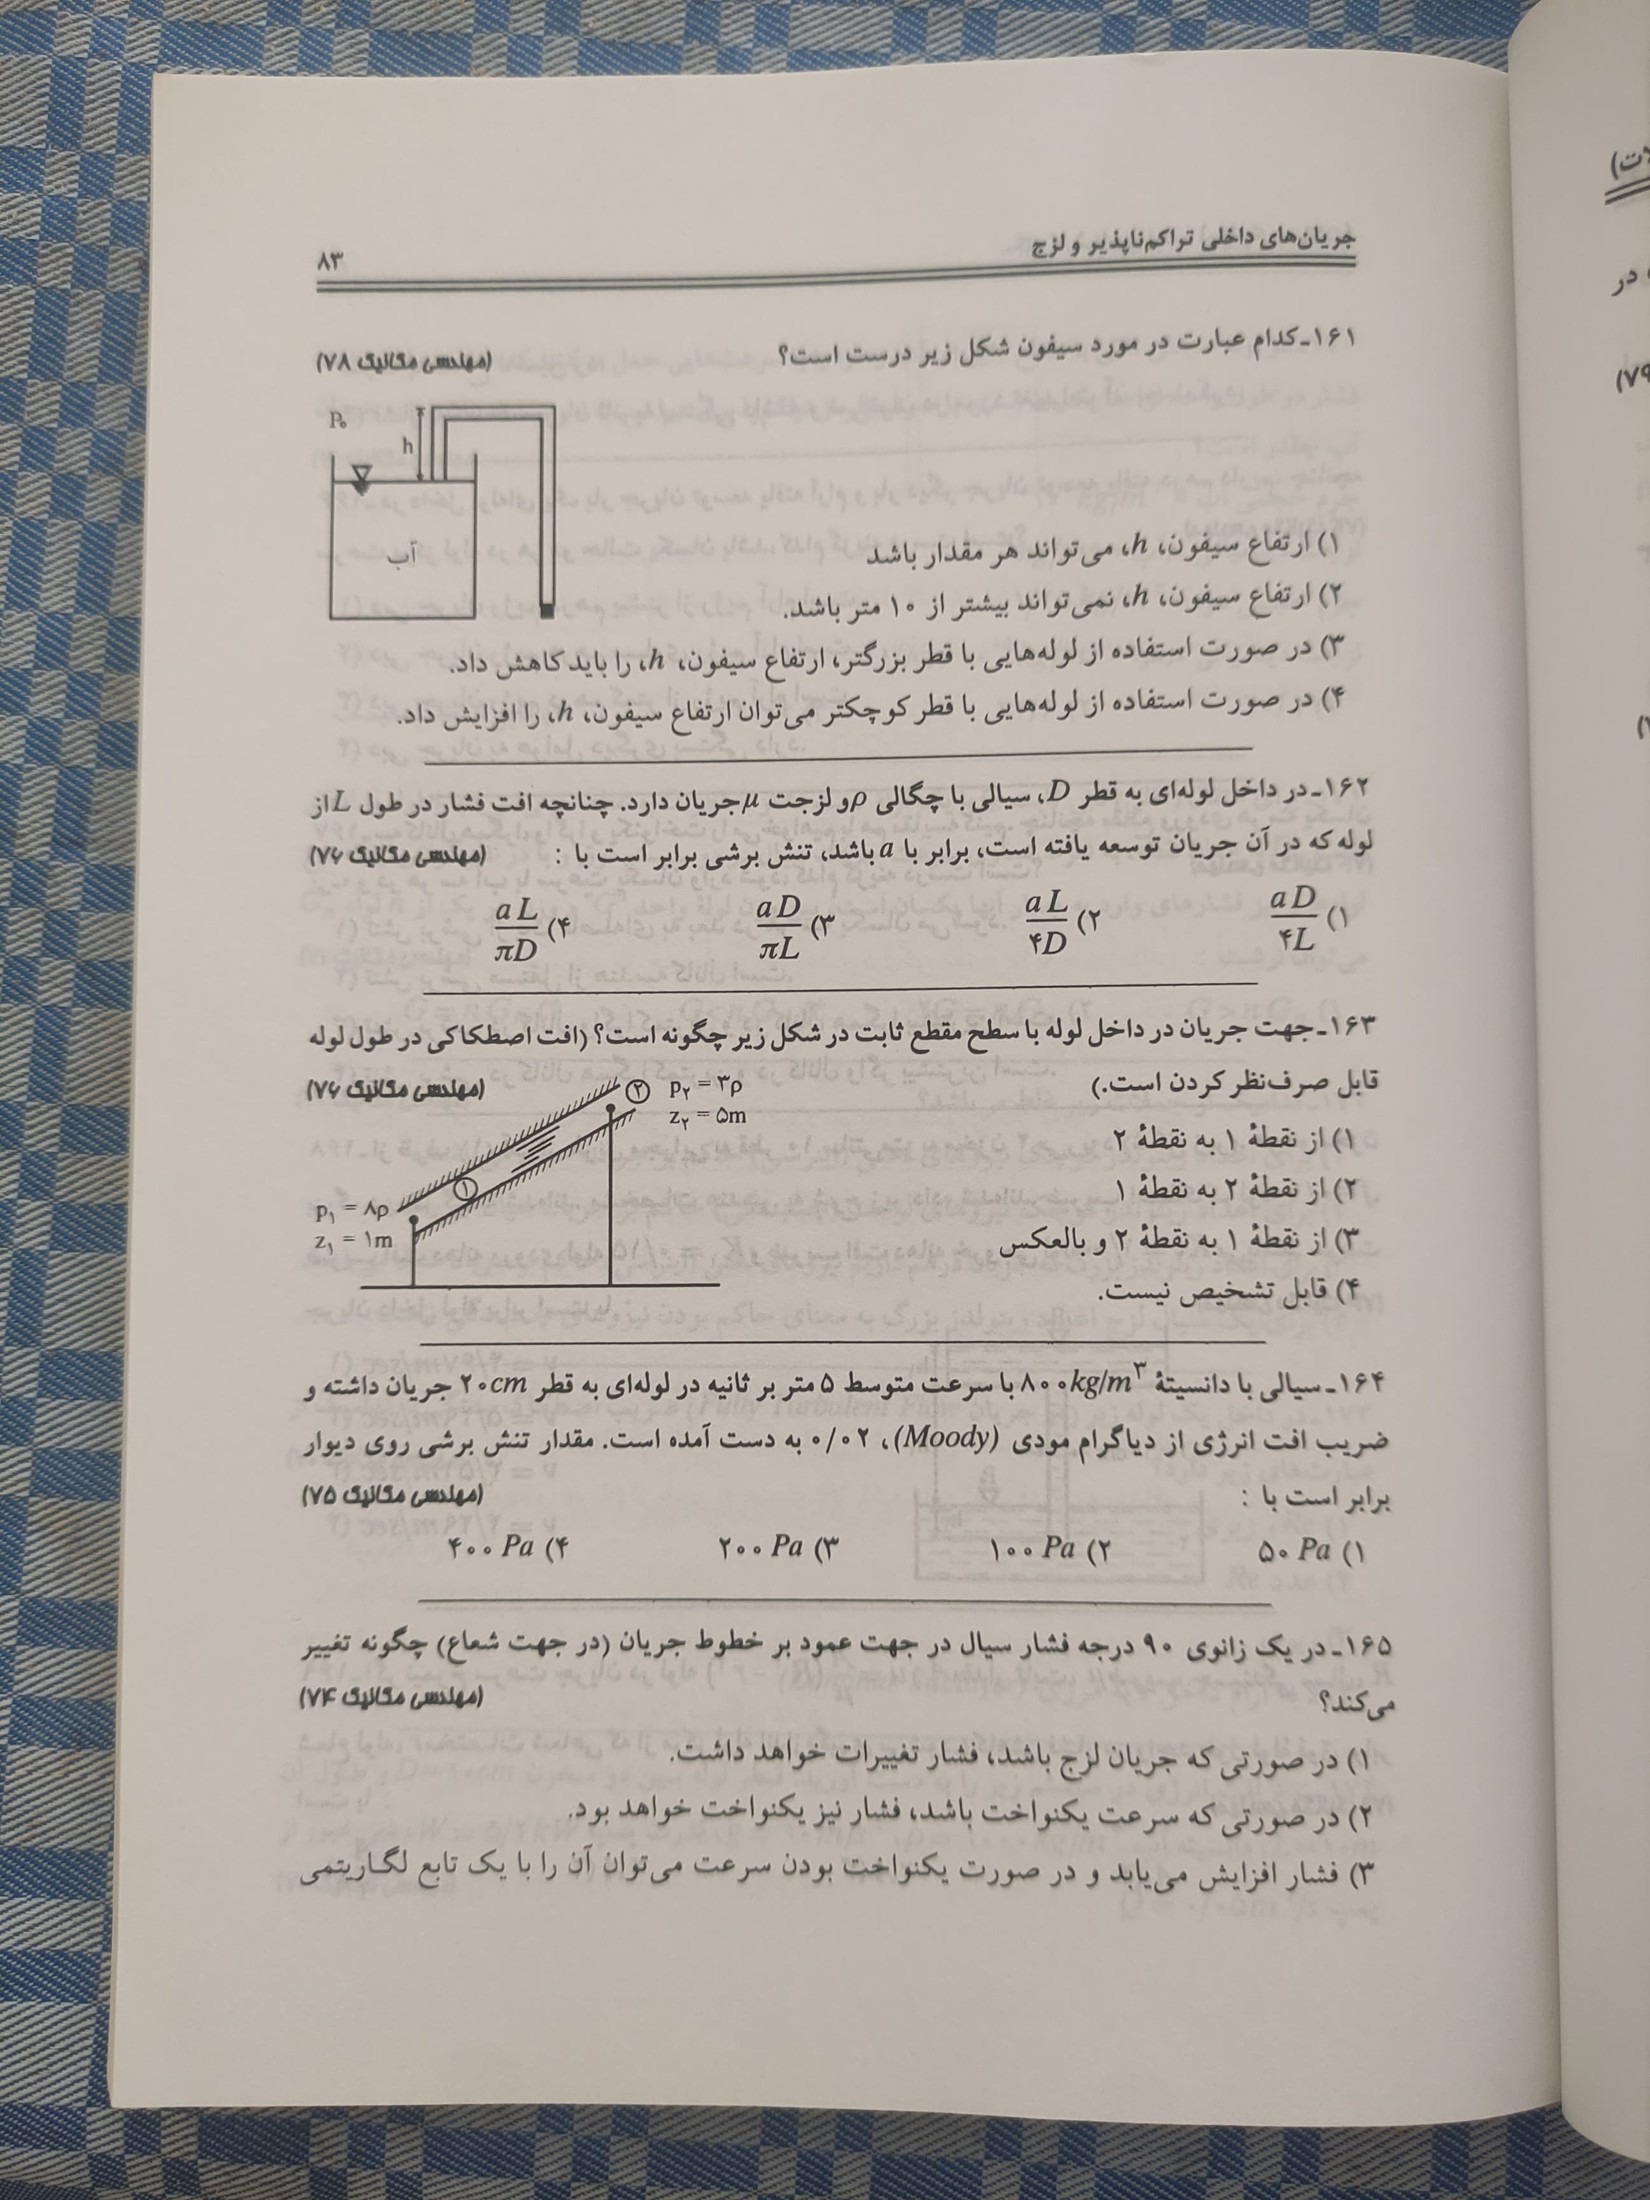 جریان‌های داخلی تراکم‌ناپذیر و لزج ۸۳
۱۶۱ـ کدام عبارت در مورد سیفون شکل زیر درست است؟ (مهندسی مکانیک ۷۸)
P۰
h
آب
۱) ارتفاع سیفون، h، می‌تواند هر مقدار باشد
۲) ارتفاع سیفون، h، نمی‌تواند بیشتر از ۱۰ متر باشد.
۳) در صورت استفاده از لوله‌هایی با قطر بزرگتر، ارتفاع سیفون، h، را باید کاهش داد.
۴) در صورت استفاده از لوله‌هایی با قطر کوچکتر می‌توان ارتفاع سیفون، h، را افزایش داد.
۱۶۲ـ در داخل لوله‌ای به قطر D، سیالی با چگالی ρ و لزجت μ جریان دارد. چنانچه افت فشار در طول L از
لوله که در آن جریان توسعه یافته است، برابر با a باشد، تنش برشی برابر است با : (مهندسی مکانیک ۷۶)
۱) aD/۴L ۲) aL/۴D ۳) aD/πL ۴) aL/πD
۱۶۳ـ جهت جریان در داخل لوله با سطح مقطع ثابت در شکل زیر چگونه است؟ (افت اصطکاکی در طول لوله
قابل صرف‌نظر کردن است.) (مهندسی مکانیک ۷۶)
② p۲ = ۳ρ
z۲ = ۵m
①
p۱ = ۸ρ
z۱ = ۱m
۱) از نقطهٔ ۱ به نقطهٔ ۲
۲) از نقطهٔ ۲ به نقطهٔ ۱
۳) از نقطهٔ ۱ به نقطهٔ ۲ و بالعکس
۴) قابل تشخیص نیست.
۱۶۴ـ سیالی با دانسیتهٔ ۸۰۰kg/m³ با سرعت متوسط ۵ متر بر ثانیه در لوله‌ای به قطر ۲۰cm جریان داشته و
ضریب افت انرژی از دیاگرام مودی (Moody)، ۰/۰۲ به دست آمده است. مقدار تنش برشی روی دیوار
برابر است با : (مهندسی مکانیک ۷۵)
۱) ۵۰ Pa ۲) ۱۰۰ Pa ۳) ۲۰۰ Pa ۴) ۴۰۰ Pa
۱۶۵ـ در یک زانوی ۹۰ درجه فشار سیال در جهت عمود بر خطوط جریان (در جهت شعاع) چگونه تغییر
می‌کند؟ (مهندسی مکانیک ۷۴)
۱) در صورتی که جریان لزج باشد، فشار تغییرات خواهد داشت.
۲) در صورتی که سرعت یکنواخت باشد، فشار نیز یکنواخت خواهد بود.
۳) فشار افزایش می‌یابد و در صورت یکنواخت بودن سرعت می‌توان آن را با یک تابع لگاریتمی